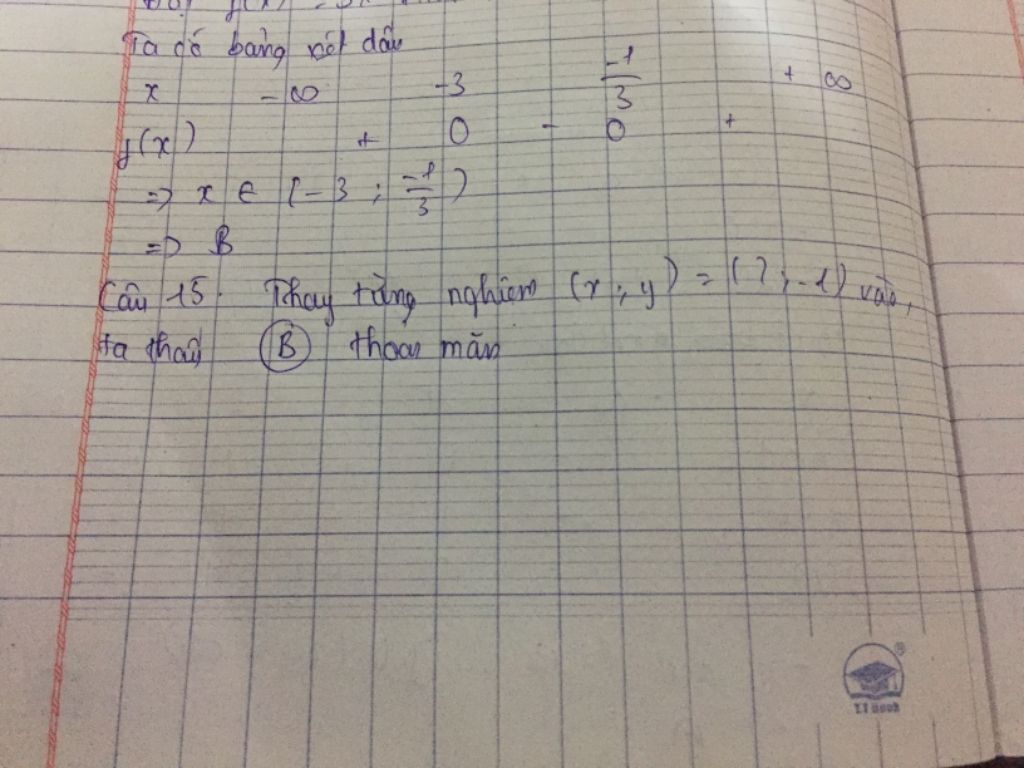 Đặt f(x) = 3x
Ta có bảng xét dấu
x -∞ -3 -1/3 +∞
f(x) + 0 - 0 +
=> x ∈ [-3 ; -1/3)
=> B
Câu 15. Thay từng nghiệm (x ; y) = (2 ; -1) vào,
ta thấy B thoả mãn